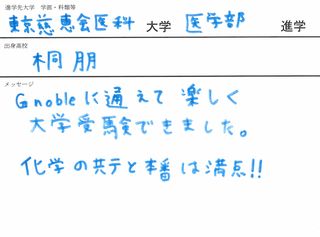 進学先大学 学部・科類等
東京慈恵会医科 大学 医学部 進学
出身高校
桐朋
メッセージ
Gnobleに通えて楽しく
大学受験できました。
化学の共テと本番は満点!!